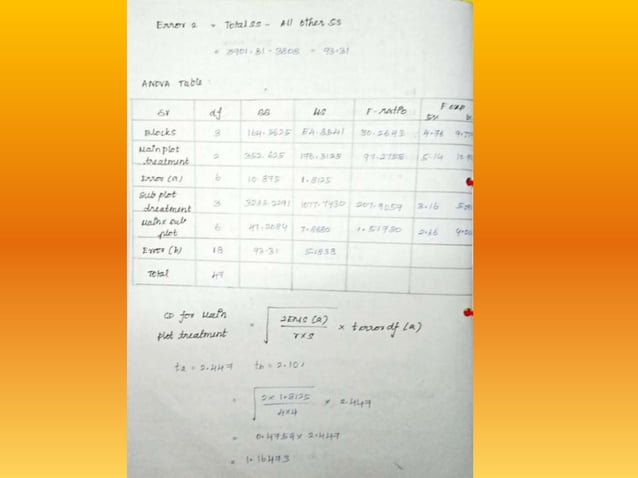 Error 2 = Total SS - All other SS
= 3901.81 - 3808 = 93.31
ANOVA Table:
SV df SS MS F-ratio F exp
5%
Blocks 3 164.5625 54.8541 30.2643 4.76
Main plot treatment 2 352.625 176.3125 97.2755 5.14
Error (a) 6 10.875 1.8125
Sub plot treatment 3 1077.7430 207.9259 3.16
Main x sub plot 6 47.2084 1.51780 2.66
Error (b) 18 93.31 5.1838
Total 47
CD for Main plot treatment = √ 2EMS (a) / r×s × t error df (a)
ta = 2.447 tb = 2.101
= √ 2×1.8125 / 4×4 × 2.447
= 0.4759 × 2.447
= 1.16473